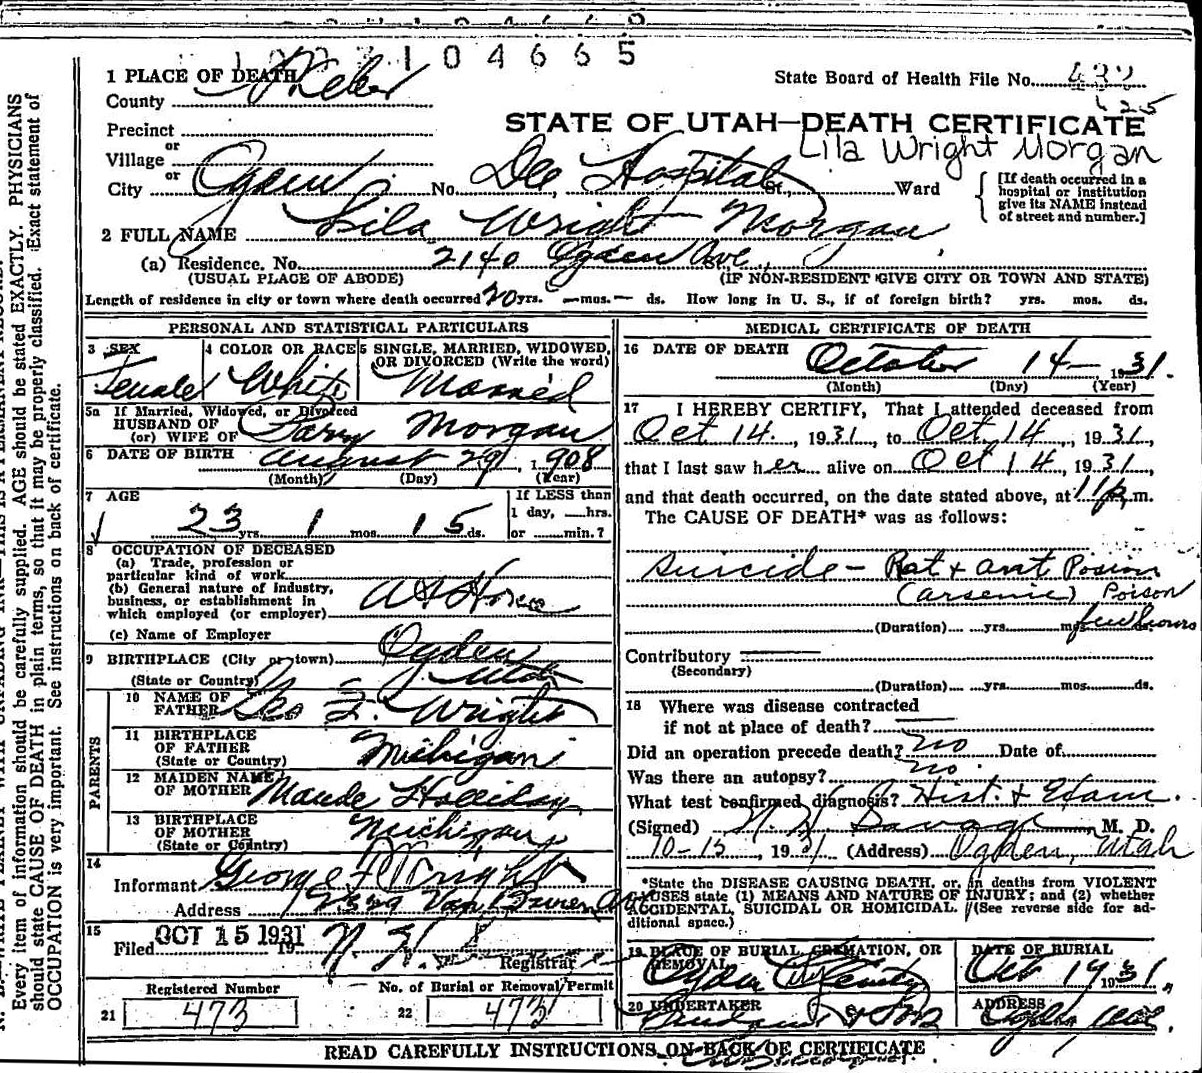 104665
1 PLACE OF DEATH
State Board of Health File No. 432
County Weber
625
Precinct
STATE OF UTAH—DEATH CERTIFICATE
or
Village
Lila Wright Morgan
or
City Ogden No. Dee Hospital St., Ward
[If death occurred in a hospital or institution give its NAME instead of street and number.]
2 FULL NAME Lila Wright Morgan
(a) Residence. No. 2140 Ogden Ave.
(USUAL PLACE OF ABODE) (IF NON-RESIDENT GIVE CITY OR TOWN AND STATE)
Length of residence in city or town where death occurred 20 yrs. — mos. — ds. How long in U. S., if of foreign birth? yrs. mos. ds.
PERSONAL AND STATISTICAL PARTICULARS
3 SEX
Female
4 COLOR OR RACE
White
5 SINGLE, MARRIED, WIDOWED, OR DIVORCED (Write the word)
Married
5a If Married, Widowed, or Divorced
HUSBAND OF
(or) WIFE OF Morgan
6 DATE OF BIRTH August 29, 1908
(Month) (Day) (Year)
7 AGE
23 yrs. 1 mos. 15 ds.
If LESS than
1 day, ....hrs.
or ......min.?
8 OCCUPATION OF DECEASED
(a) Trade, profession or
particular kind of work
(b) General nature of industry,
business, or establishment in
which employed (or employer) At Home
(c) Name of Employer
9 BIRTHPLACE (City or town) Ogden
(State or Country) Utah
PARENTS
10 NAME OF
FATHER Geo F. Wright
11 BIRTHPLACE
OF FATHER
(State or Country) Michigan
12 MAIDEN NAME
OF MOTHER Maude Holliday
13 BIRTHPLACE
OF MOTHER
(State or Country) Michigan
14
Informant George F Wright
Address Van Buren Av
15
Filed OCT 15 1931 19
Registrar
Registered Number
21 473
No. of Burial or Removal Permit
22 473
MEDICAL CERTIFICATE OF DEATH
16 DATE OF DEATH October 14— 1931.
(Month) (Day) (Year)
17 I HEREBY CERTIFY, That I attended deceased from
Oct 14., 1931, to Oct, 14, 1931,
that I last saw her alive on Oct 14, 1931,
and that death occurred, on the date stated above, at 11 p. m.
The CAUSE OF DEATH* was as follows:
Suicide — Rat + ant Posion
(arsenic) Poison
(Duration) yrs. mos. few hours
Contributory
(Secondary)
(Duration) yrs. mos. ds.
18 Where was disease contracted
if not at place of death?
Did an operation precede death? no Date of
Was there an autopsy? no.
What test confirmed diagnosis? Hist. + Exam.
(Signed) Savage, M. D.
10-15, 1931 (Address) Ogden, Utah
*State the DISEASE CAUSING DEATH, or, in deaths from VIOLENT
CAUSES state (1) MEANS AND NATURE OF INJURY; and (2) whether
ACCIDENTAL, SUICIDAL OR HOMICIDAL. (See reverse side for ad-
ditional space.)
19 PLACE OF BURIAL, CREMATION, OR
REMOVAL
Ogden City
DATE OF BURIAL
Oct 19 1931.
20 UNDERTAKER
& Sons
ADDRESS
Ogden
READ CAREFULLY INSTRUCTIONS ON BACK OF CERTIFICATE
Every item of information should be carefully supplied. AGE should be stated EXACTLY. PHYSICIANS
should state CAUSE OF DEATH in plain terms, so that it may be properly classified. Exact statement of
OCCUPATION is very important. See instructions on back of certificate.